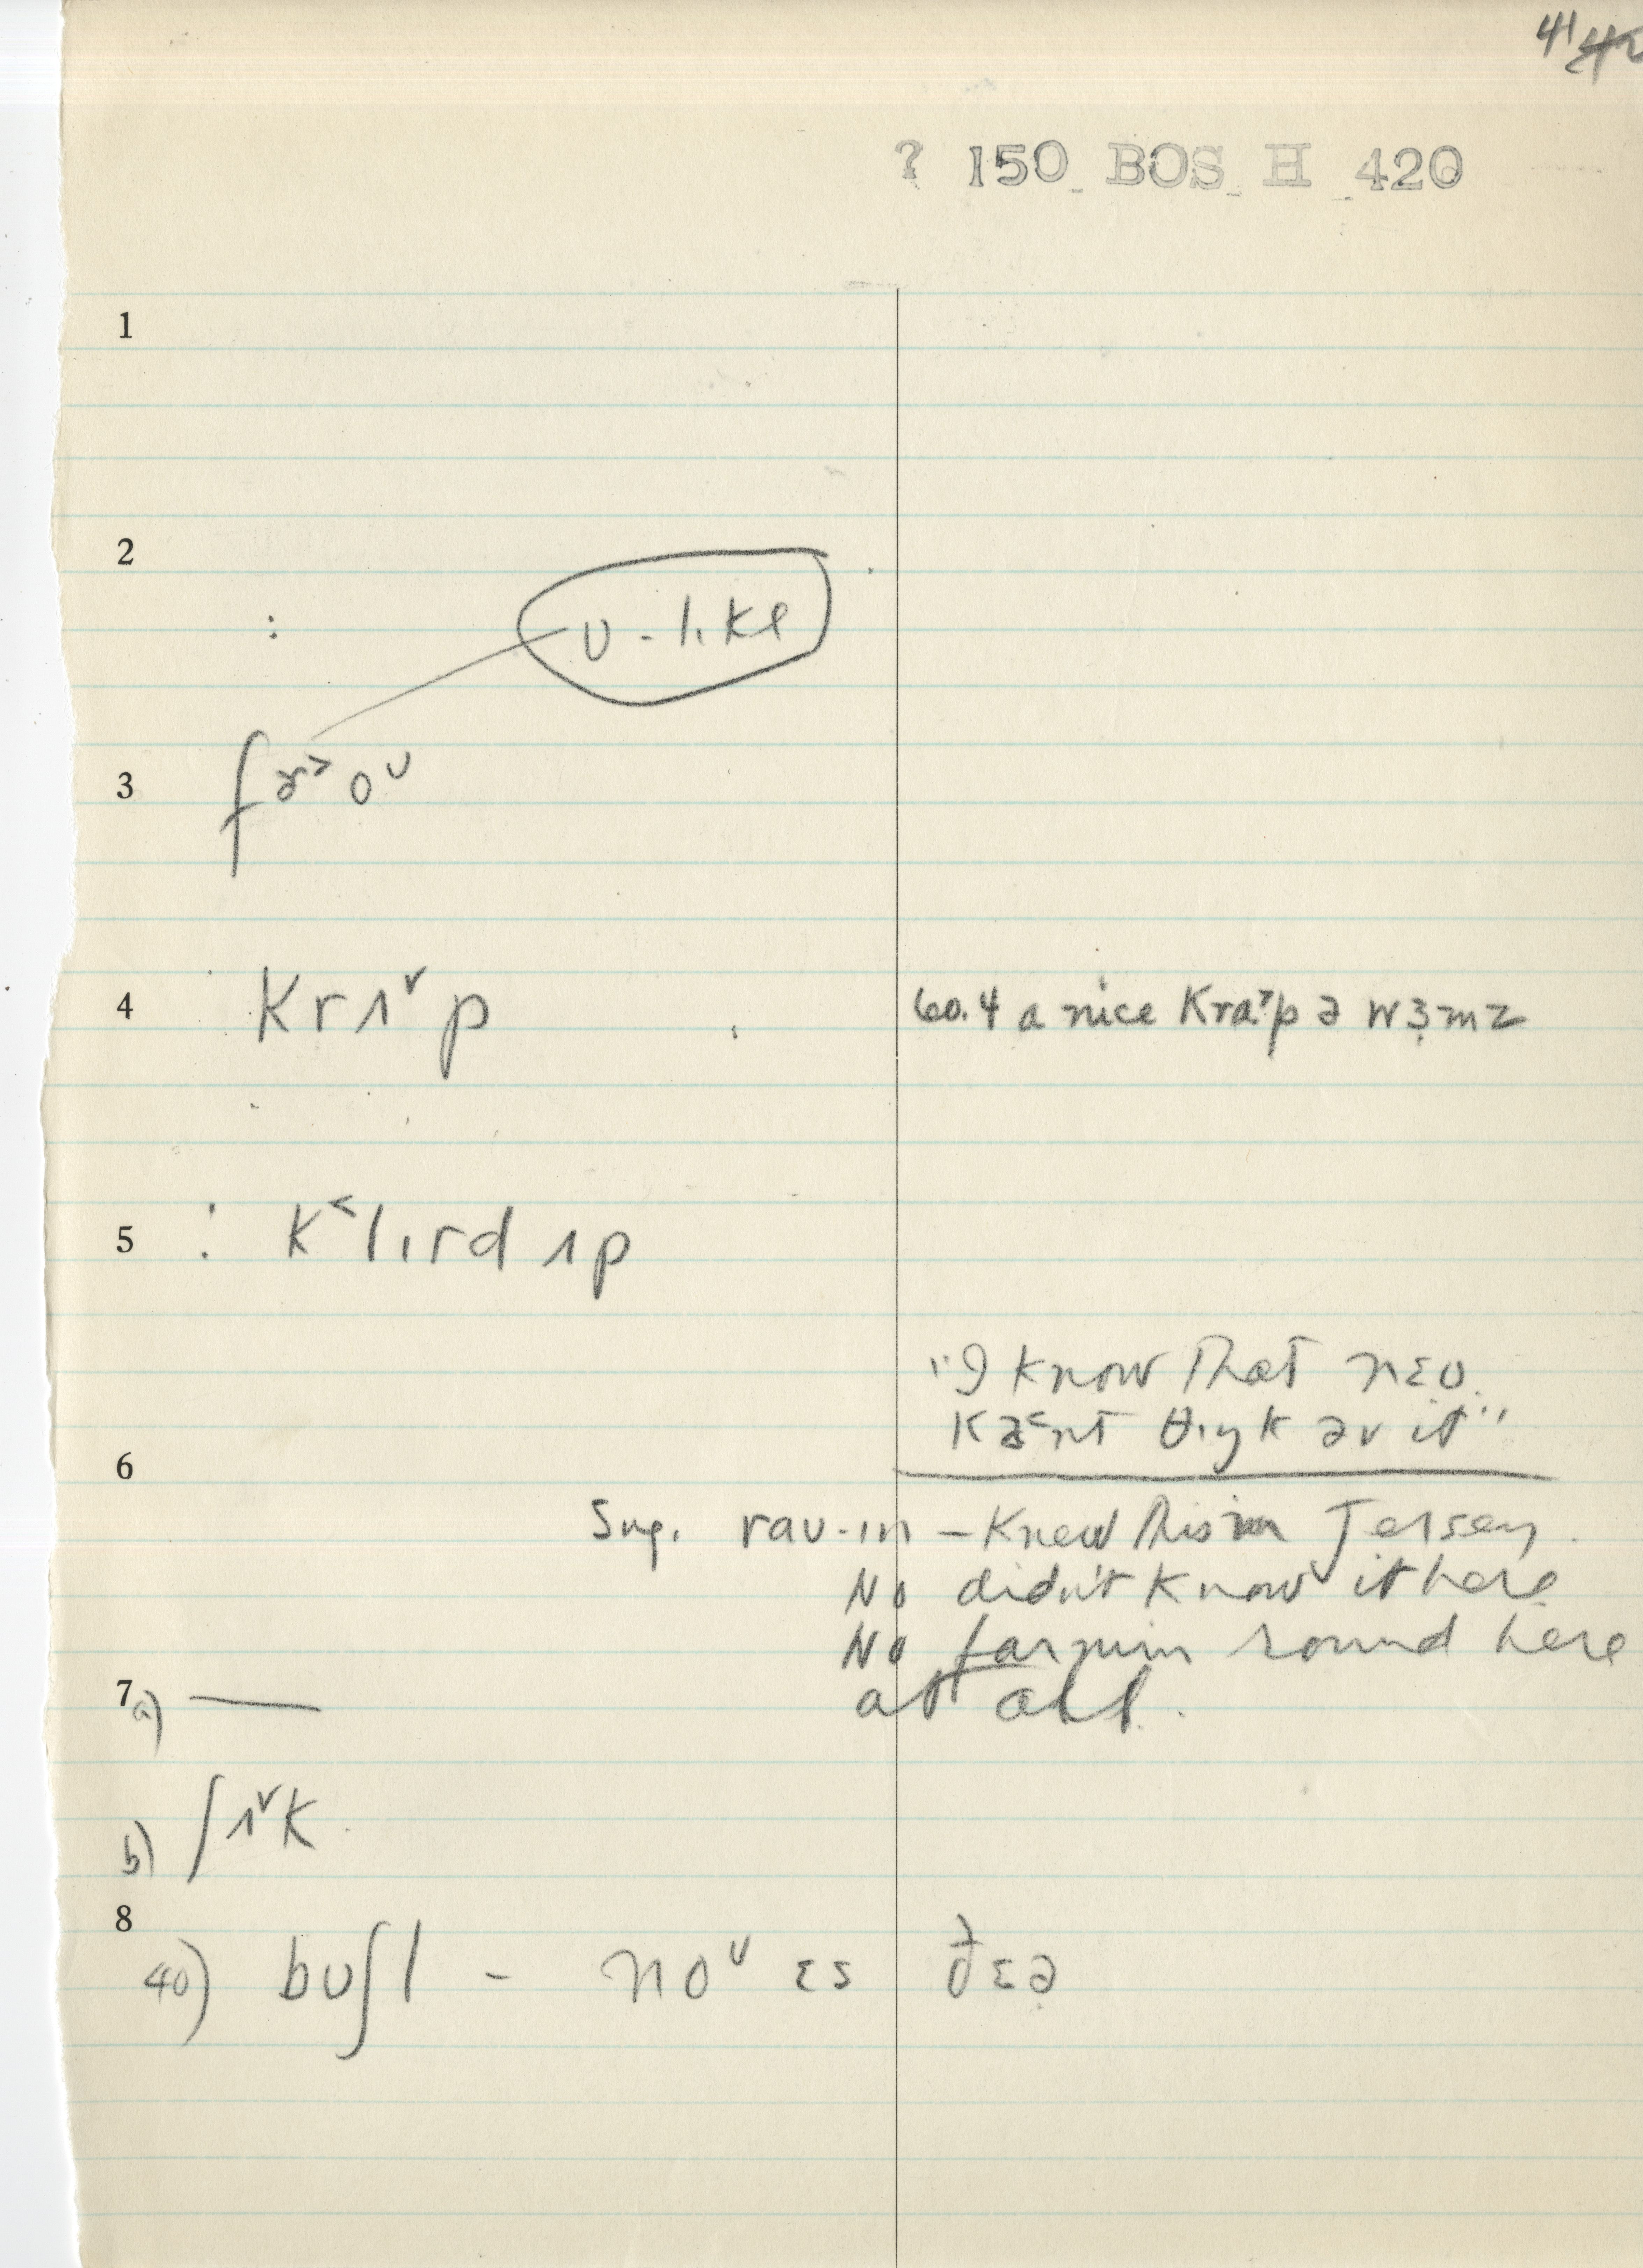 41
? 150 BOS H 420
1
2
: ʊ-like
3 fɚ˃ oᴜ
4 Krʌ˅p 60.4 a nice Kra˃p ə wɜmz
5 : K˂lɪrd ʌp
"I know that nɛʊ
Kæ˂nt θɪŋk əv it"
6
Sug. raʊ-ɪn – Knew this in Jersey
No didn't Know it here
No farmin round here
7 a) — at all.
b) ʃʌ˅K
8
40) bʊʃl - noᴜ ɛs ðɛə